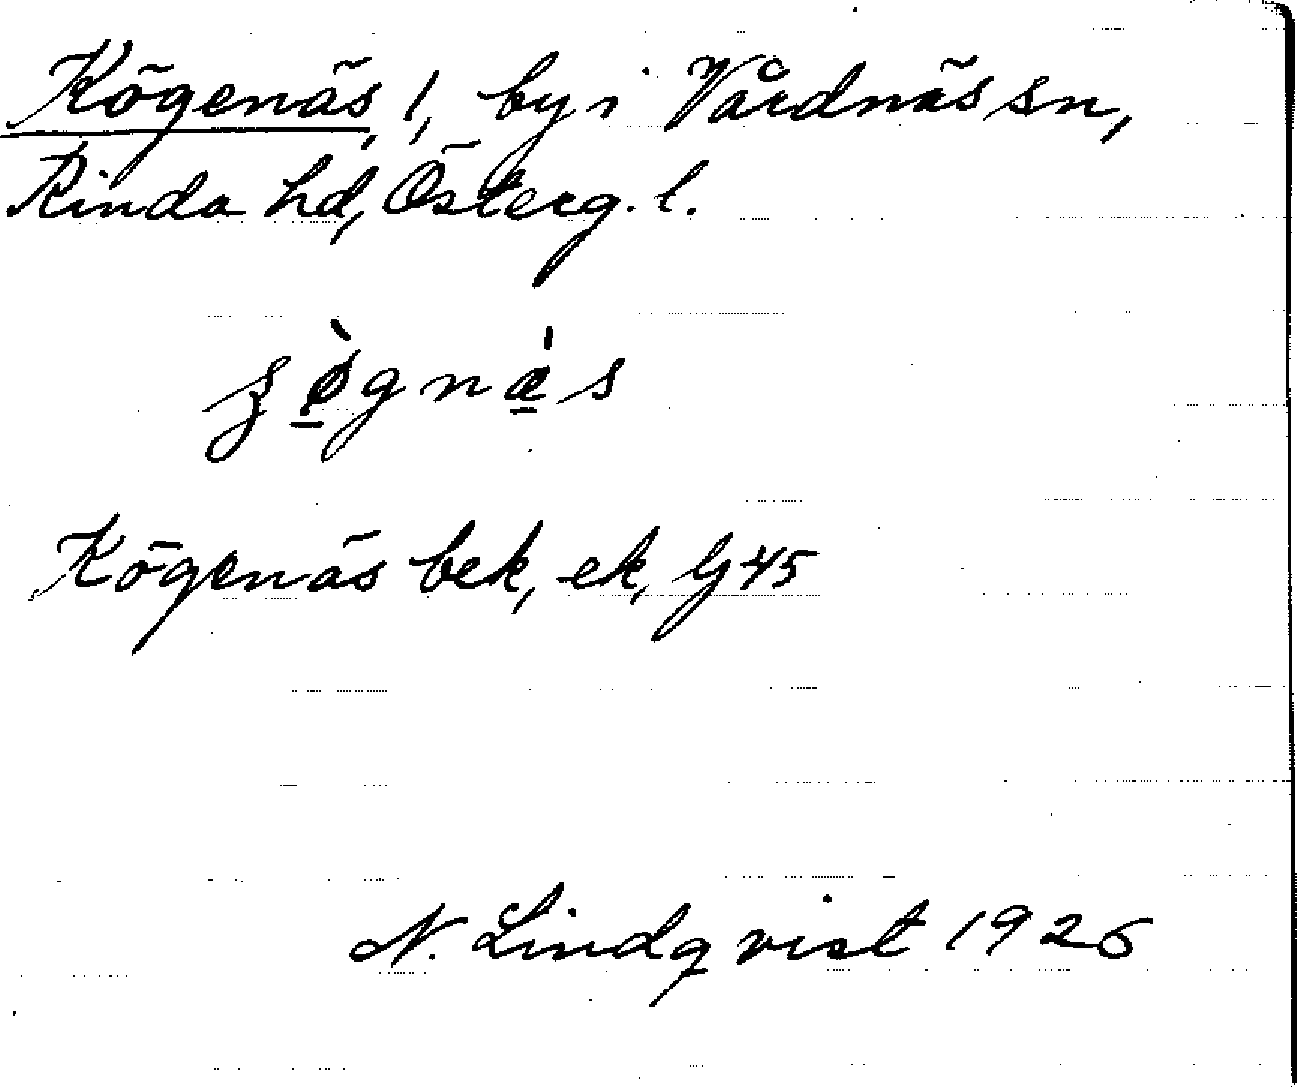 Kögenäs, 1, by i Vårdnäs sn,
Kinda hd, Österg. l.
Kögenäs bek, ek, G 45
N. Lindqvist 1926